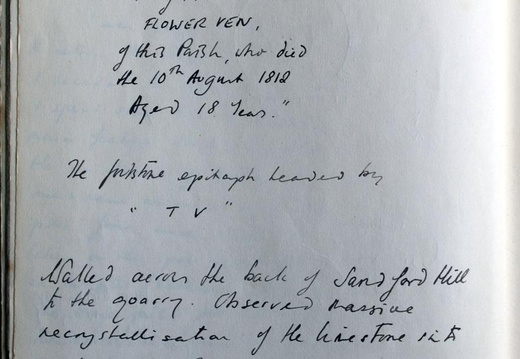 FLOWER VEN,
of this Parish, who died
the 10th August 1812
Aged 18 Years."
The footstone epitaph headed by
" T V "
Walked across the back of Sandford Hill
to the quarry. Observed massive
recrystallisation of the limestone into